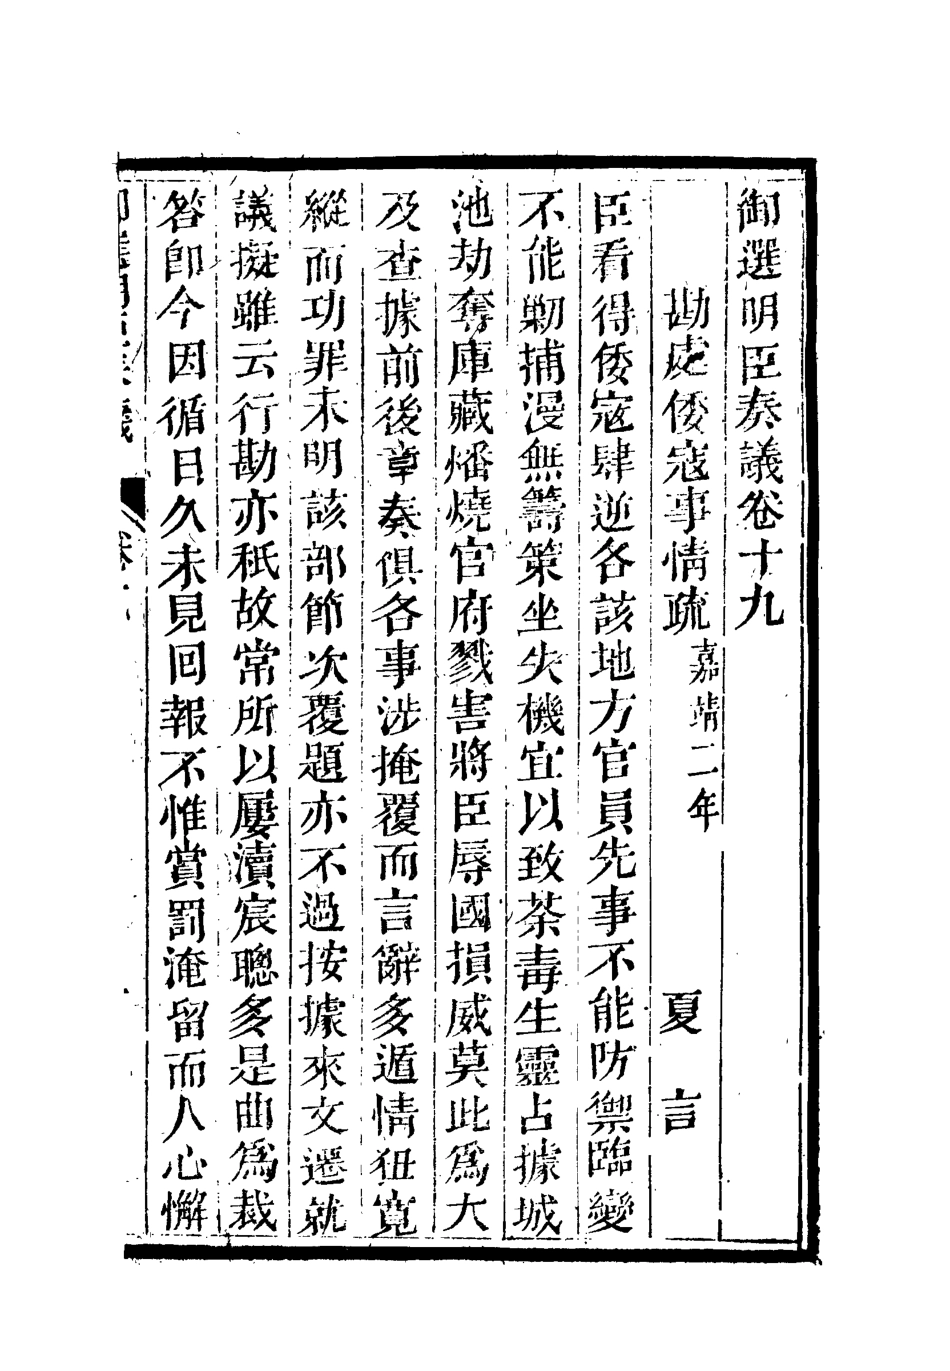 御選明臣奏議卷十九
勘處倭寇事情疏嘉靖二年 夏言
臣看得倭寇肆逆各該地方官員先事不能防禦臨變
不能勦捕漫無籌策坐失機宜以致荼毒生靈占據城
池劫奪庫藏燔燒官府戮害將臣辱國損威莫此爲大
及查據前後章奏俱各事涉掩覆而言辭多遁情狃寬
縱而功罪未明該部節次覆題亦不過按據來文遷就
議擬雖云行勘亦秖故常所以屢瀆宸聰多是曲爲裁
答卽今因循日久未見回報不惟賞罰淹留而人心懈